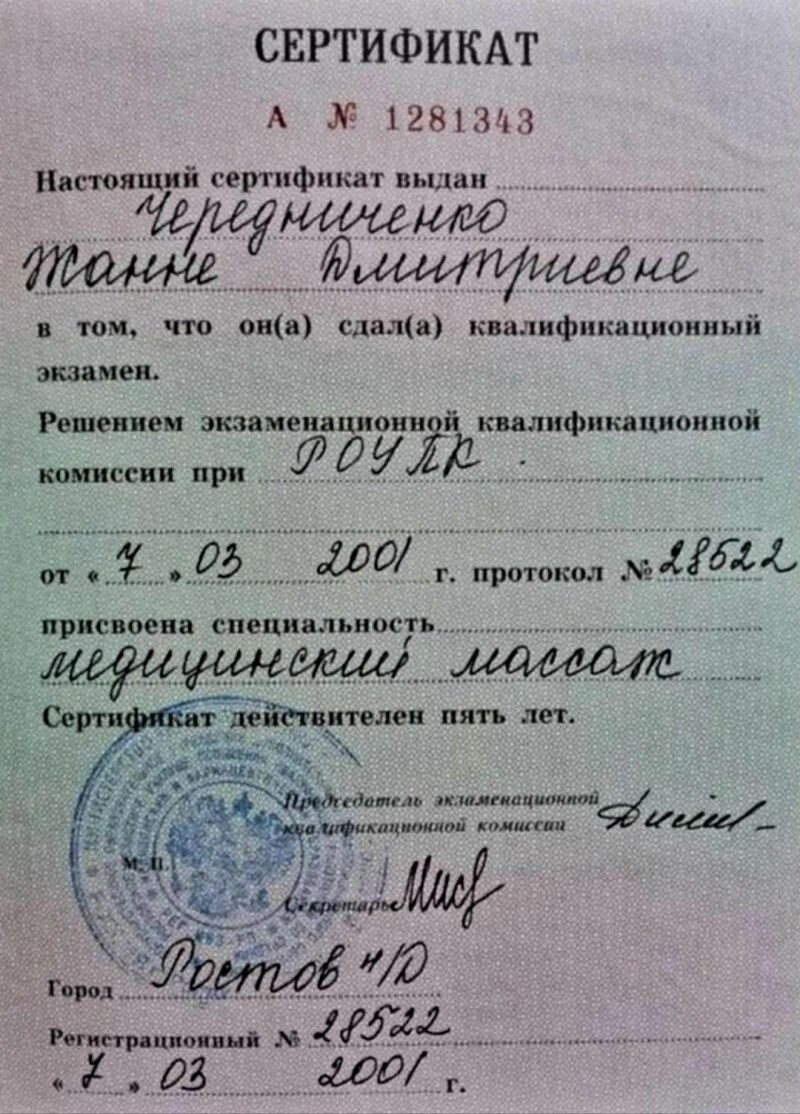 СЕРТИФИКАТ
А № 1281343
Настоящий сертификат выдан
Чередниченко
Жанне Дмитриевне
в том, что он(а) сдал(а) квалификационный
экзамен.
Решением экзаменационной квалификационной
комиссии при РОУПК
от « 7 » 03 2001 г. протокол № 28522
присвоена специальность
медицинский массаж
Сертификат действителен пять лет.
Председатель экзаменационной
квалификационной комиссии
М. П.
Секретарь
Город Ростов н/Д
Регистрационный № 28522
« 7 » 03 2001 г.